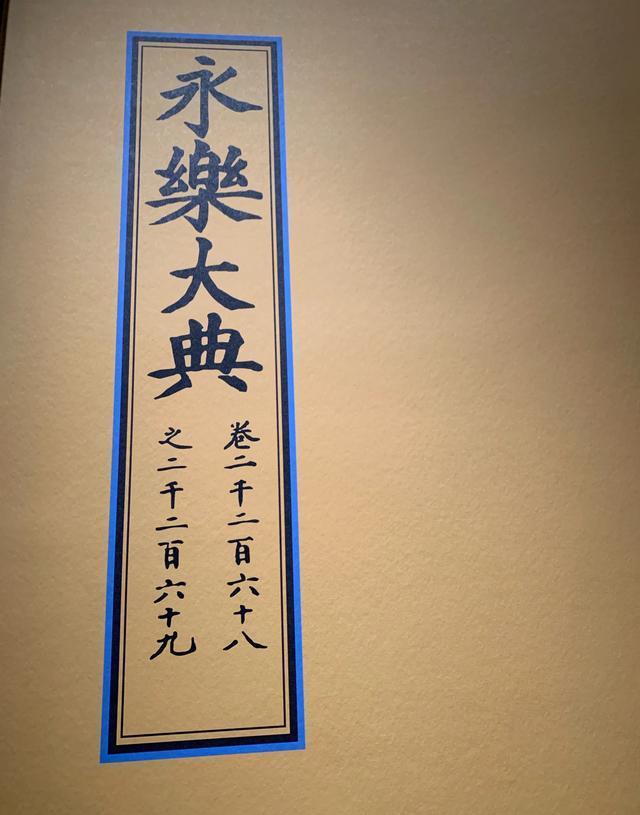 永樂大典
卷二千二百六十八
之二千二百六十九